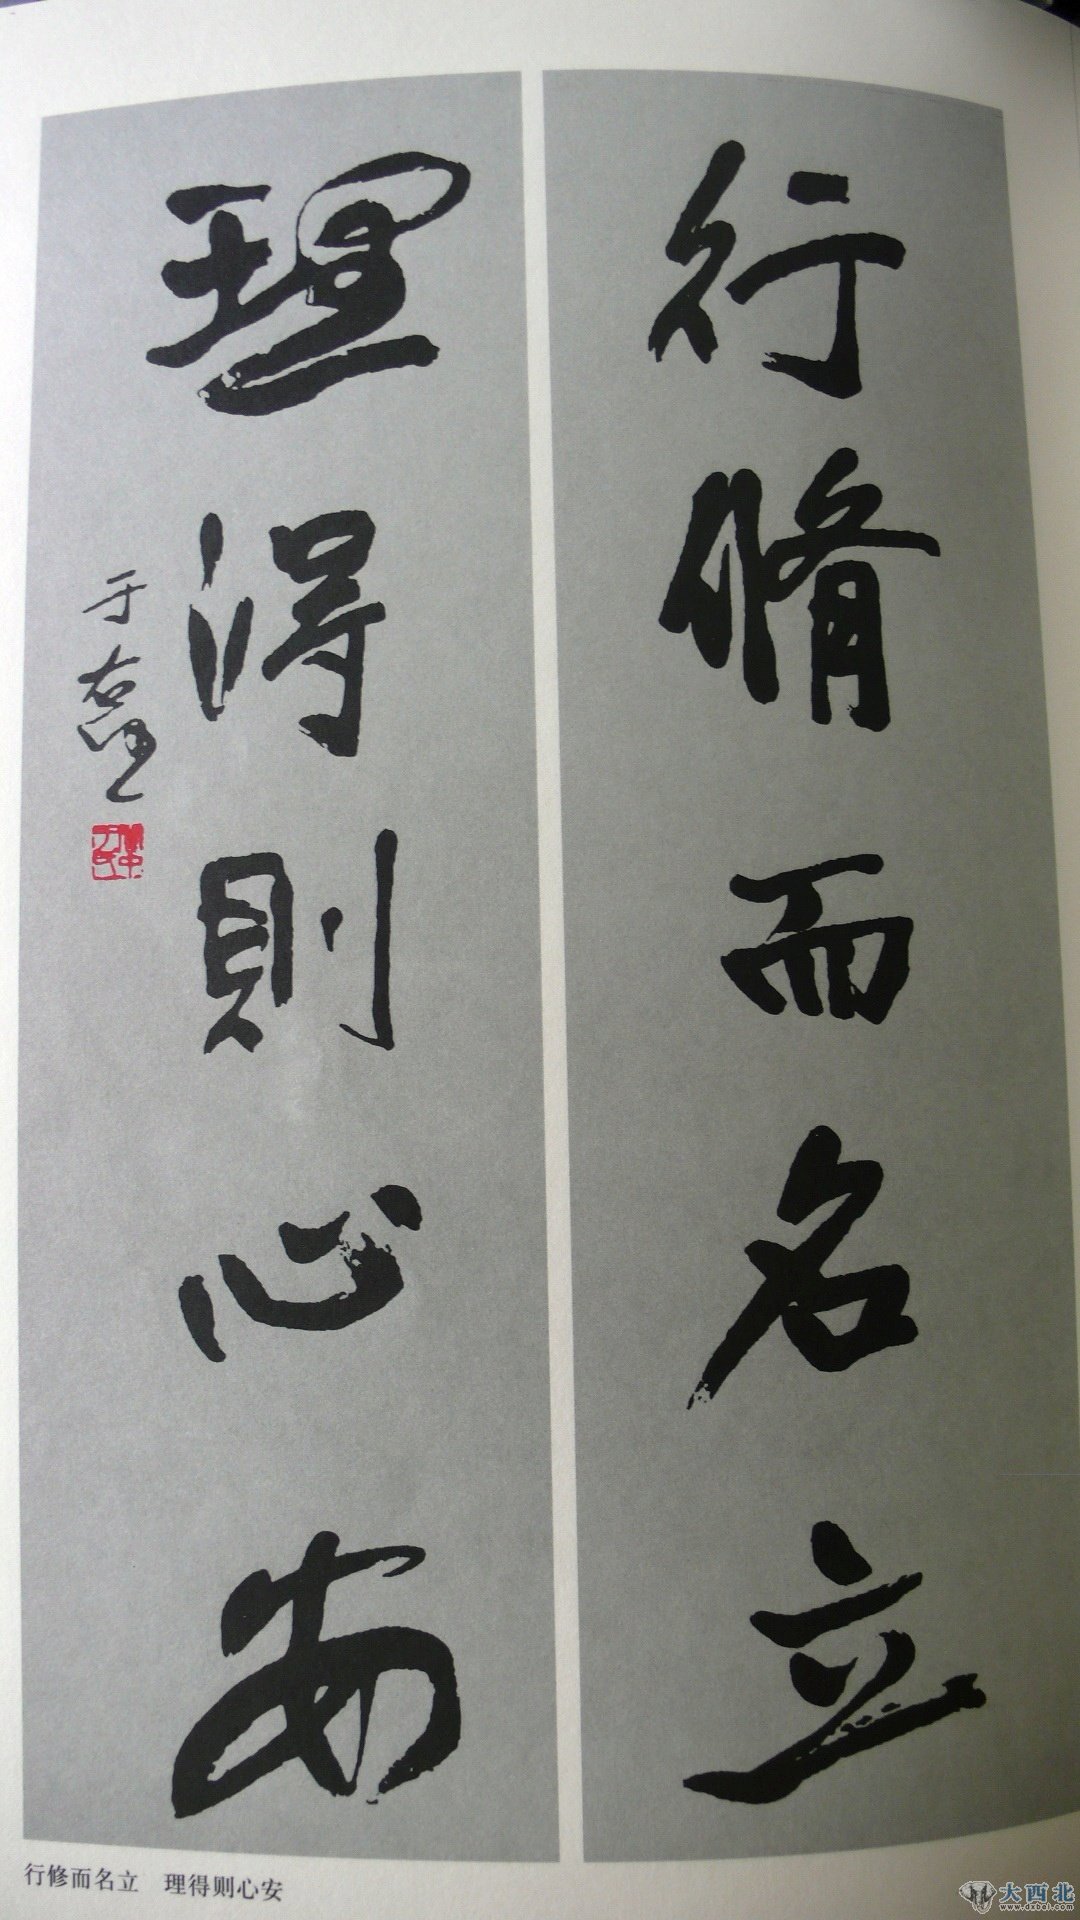 行脩而名立
理得則心安
于右任
行修而名立　理得则心安
大西北
www.dxbei.com